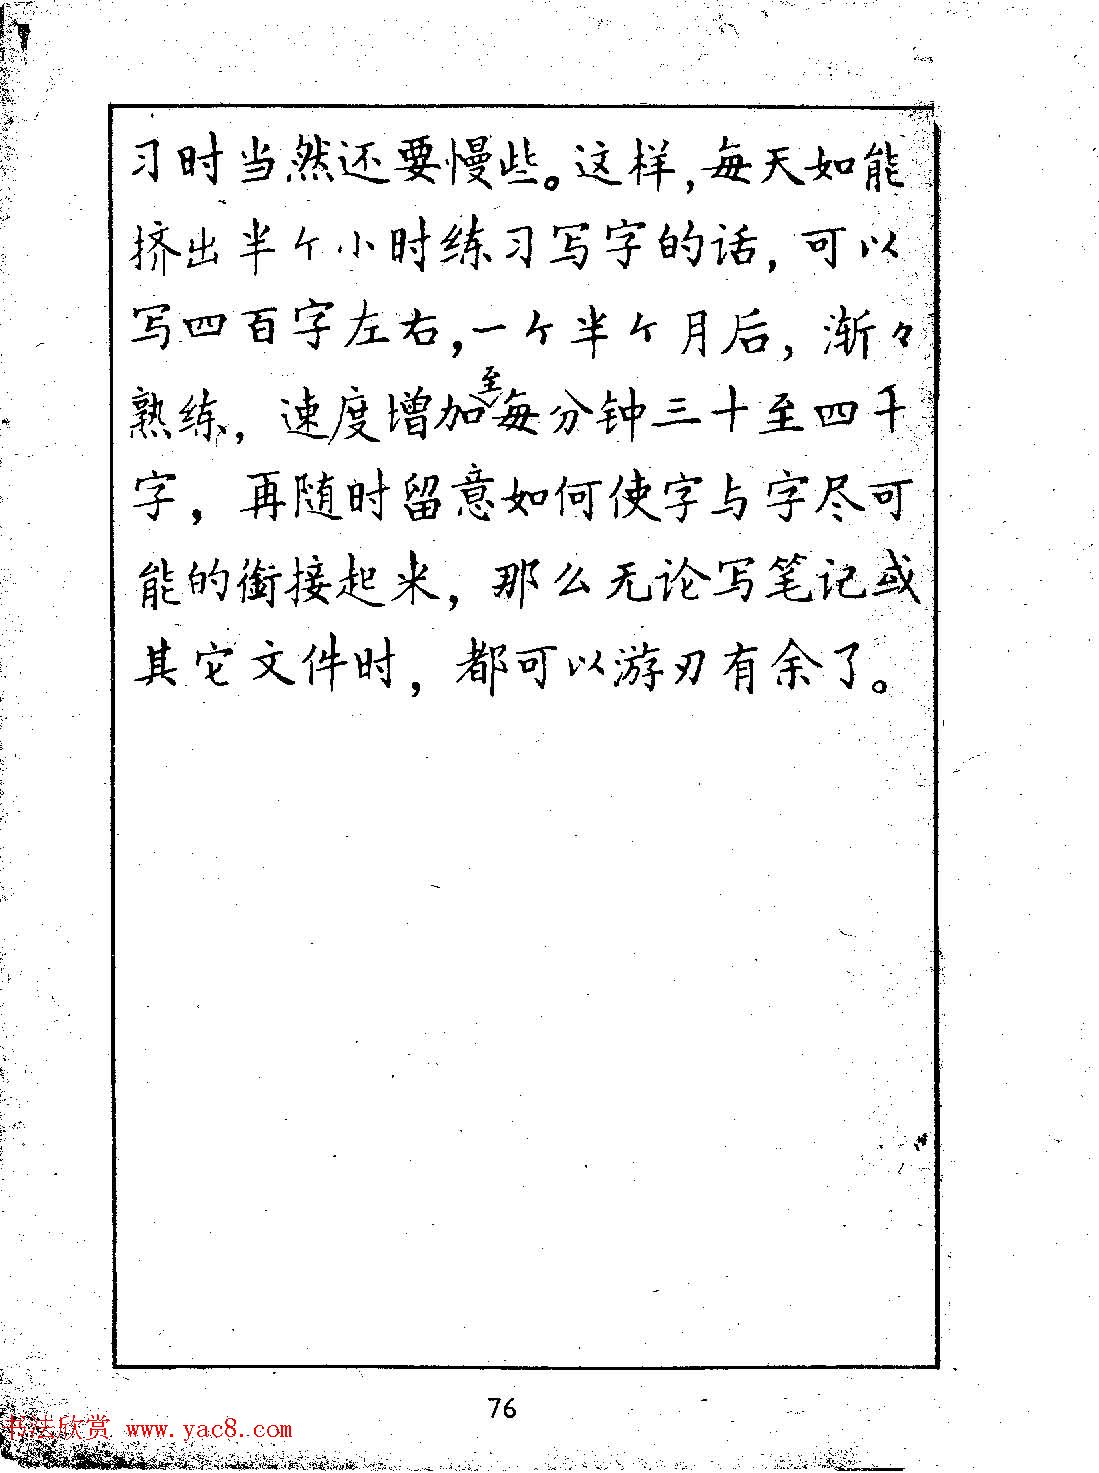 习时当然还要慢些。这样,每天如能
挤出半个小时练习写字的话,可以
写四百字左右,一个半个月后,渐々
熟练,速度增加至每分钟三十至四千
字,再随时留意如何使字与字尽可
能的衔接起来,那么无论写笔记或
其它文件时,都可以游刃有余了。
76
书法欣赏 www.yac8.com